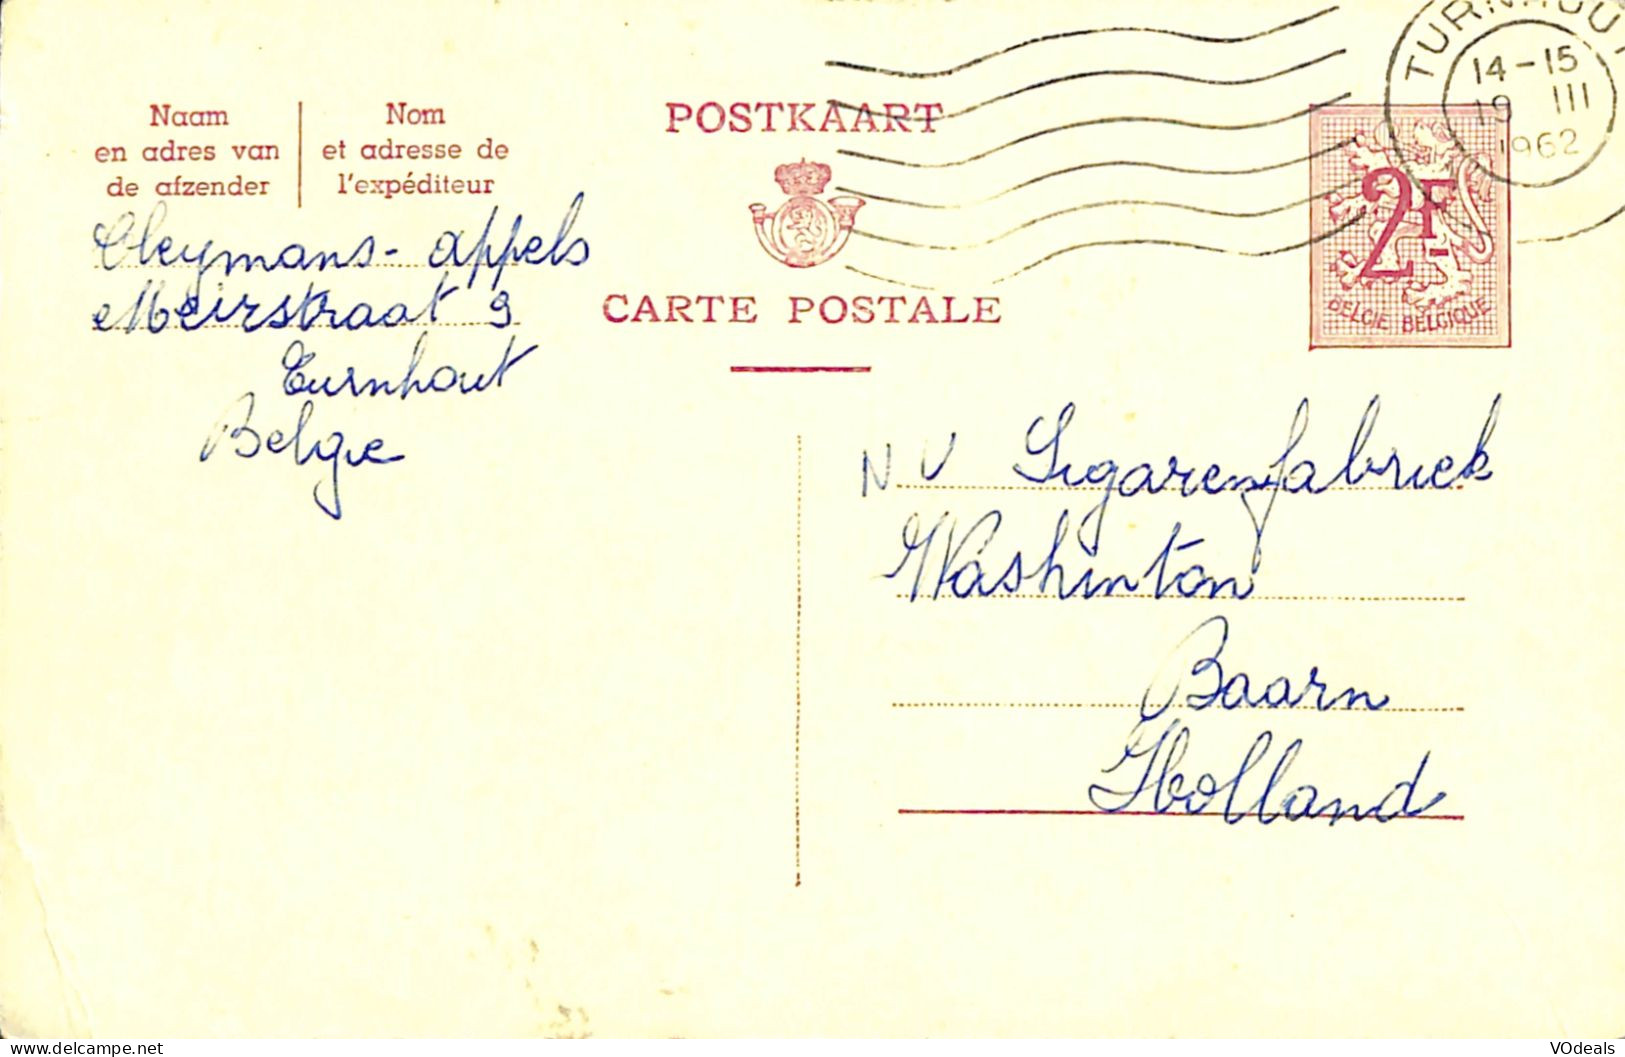 Naam
en adres van
de afzender
Nom
et adresse de
l'expéditeur
Cleymans - appels
Meirstraat 9
Turnhout
Belgie
POSTKAART
CARTE POSTALE
TURNHOUT
14-15
19 III
1962
2F
BELGIE BELGIQUE
N V Sigarenfabriek
Washinton
Baarn
Holland
VOdeals